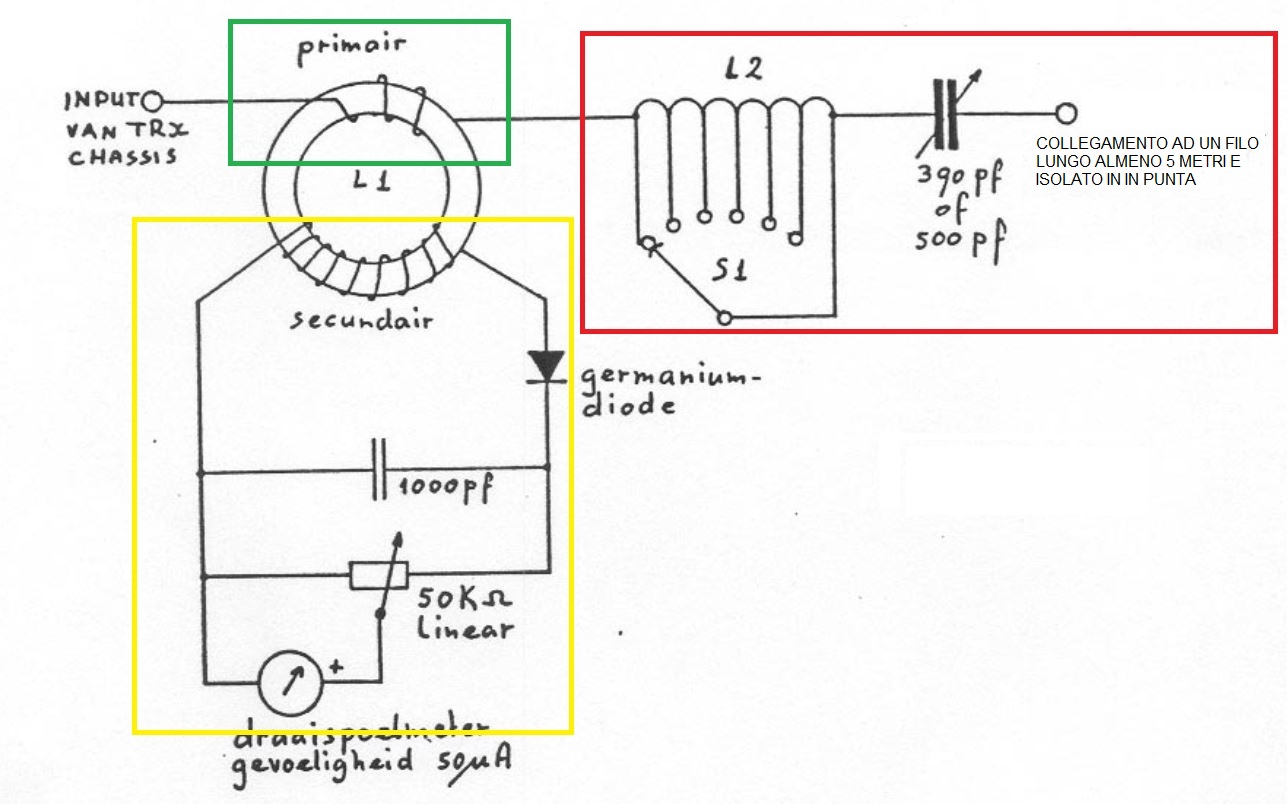 primair
INPUT
VAN TRX
CHASSIS
L1
secundair
L2
S1
390 pf
of
500 pf
COLLEGAMENTO AD UN FILO
LUNGO ALMENO 5 METRI E
ISOLATO IN IN PUNTA
germanium-
diode
1000pf
50KΩ
Linear
+
draaispoelmeter
gevoeligheid 50µA